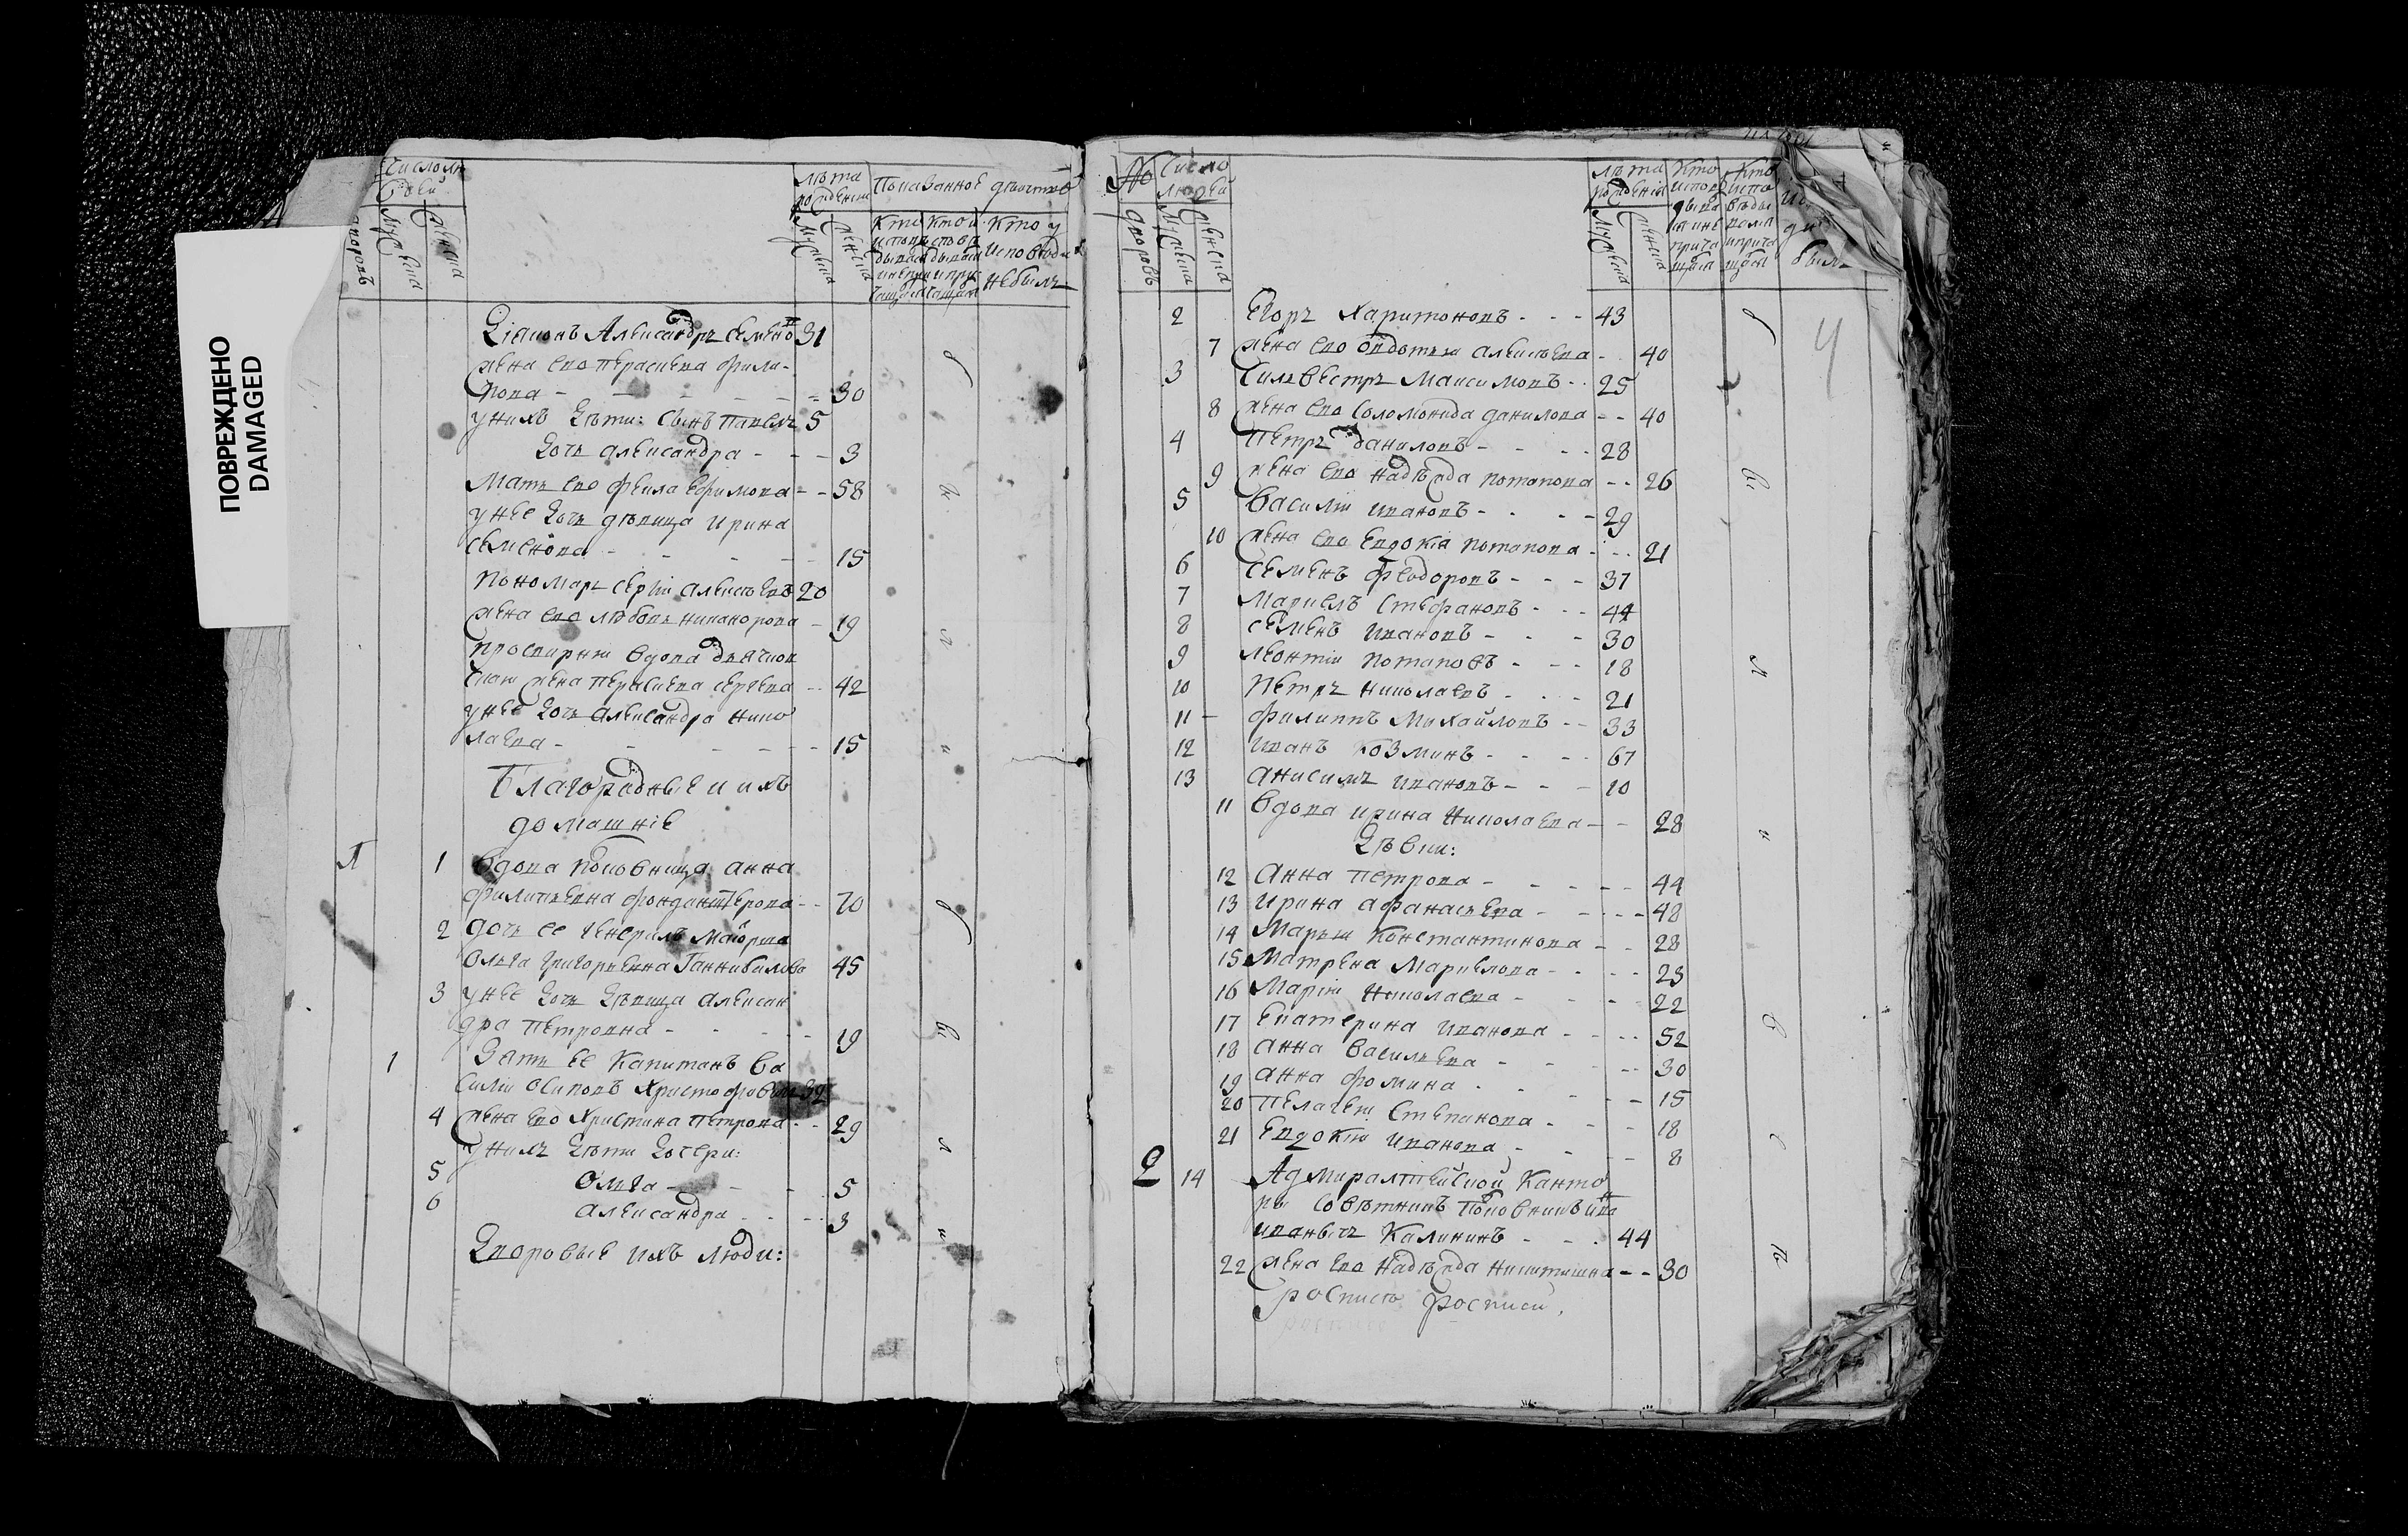 ПОВРЕЖДЕНО
DAMAGED
Число лю
дей
дворовъ
Мужеска
Женска
лѣта
рожденія
Мужеска
Женска
Показанное дѣйство
Кто
Кто и
Кто у
Исповѣди
небылъ
Діаконъ Александръ Семено 31
жена его Параскева Фили-
пова - - - - 30
у нихъ дѣти: сынъ Павелъ 5
дочь Александра - - - 3
Мать его Фекла Ефимова - - 58
у нее дочь дѣвица Ирина
Семенова - - - - 15
Пономарь Сергій Алексѣевъ 20
жена его Любовь Никанорова - 19
просвирня вдова дьячков
ская жена Параскева Сергѣева - 42
у нее дочь Александра Нико
лаева - - - - 15
Благородные и ихъ
домашніе
1 1 вдова полковница Анна
Филипьевна - - 70
2 дочь ее генералъ маiорша
Ольга Григорьевна Ганнибалова 45
3 у нее дочь дѣвица Алексан
дра Петровна - - - - 19
1 Зять ее капитанъ Ва
силій Осиповъ Христофоровичь 39
4 жена его Христина Петрова - - 29
у нихъ дѣти дочери:
5 Ольга - - - 5
6 Александра - - - 3
Дворовые ихъ люди:
No
Число
людей
дворовъ
Мужеска
Женска
лѣта
рожденія
Мужеска
Женска
Кто
Кто
былъ
4
2 Егоръ Харитоновъ - - - 43
7 жена его Авдотья Алексѣева - - 40
3 Сильвестръ Максимовъ - - 25
8 жена его Соломонида Данилова - - 40
4 Петръ Даниловъ - - - - 28
9 жена его Надѣжда Потапова - - 26
5 Василій Ивановъ - - - - 29
10 жена его Евдокія Потапова - - - 21
6 Семенъ Феодоровъ - - - 37
7 Маркелъ Стефановъ - - - 44
8 Семенъ Ивановъ - - - 30
9 Леонтій Потаповъ - - - 18
10 Петръ Николаевъ - - - 21
11 - Филиппъ Михайловъ - - 33
12 Иванъ Козминъ - - - - 67
13 Анисимъ Ивановъ - - - 10
11 вдова Ирина Николаева - - 28
Дѣвки:
12 Анна Петрова - - - - - 44
13 Ирина Афанасьева - - - - - 48
14 Марья Константинова - - 28
15 Матрена Маркелова - - - - 23
16 Марія Николаева - - - - 22
17 Екатерина Иванова - - - - 52
18 Анна Васильева - - - - - 30
19 Анна Фомина - - - - - 15
20 Пелагея Степанова - - - - 18
21 Евдокія Иванова - - - - 8
2 14 Адмиралтейской канто
ры совѣтникъ полковникъ Ива
Иванычъ Калининъ - - - 44
22 жена его Надѣжда Никитишна - - 30
роспись росписи.